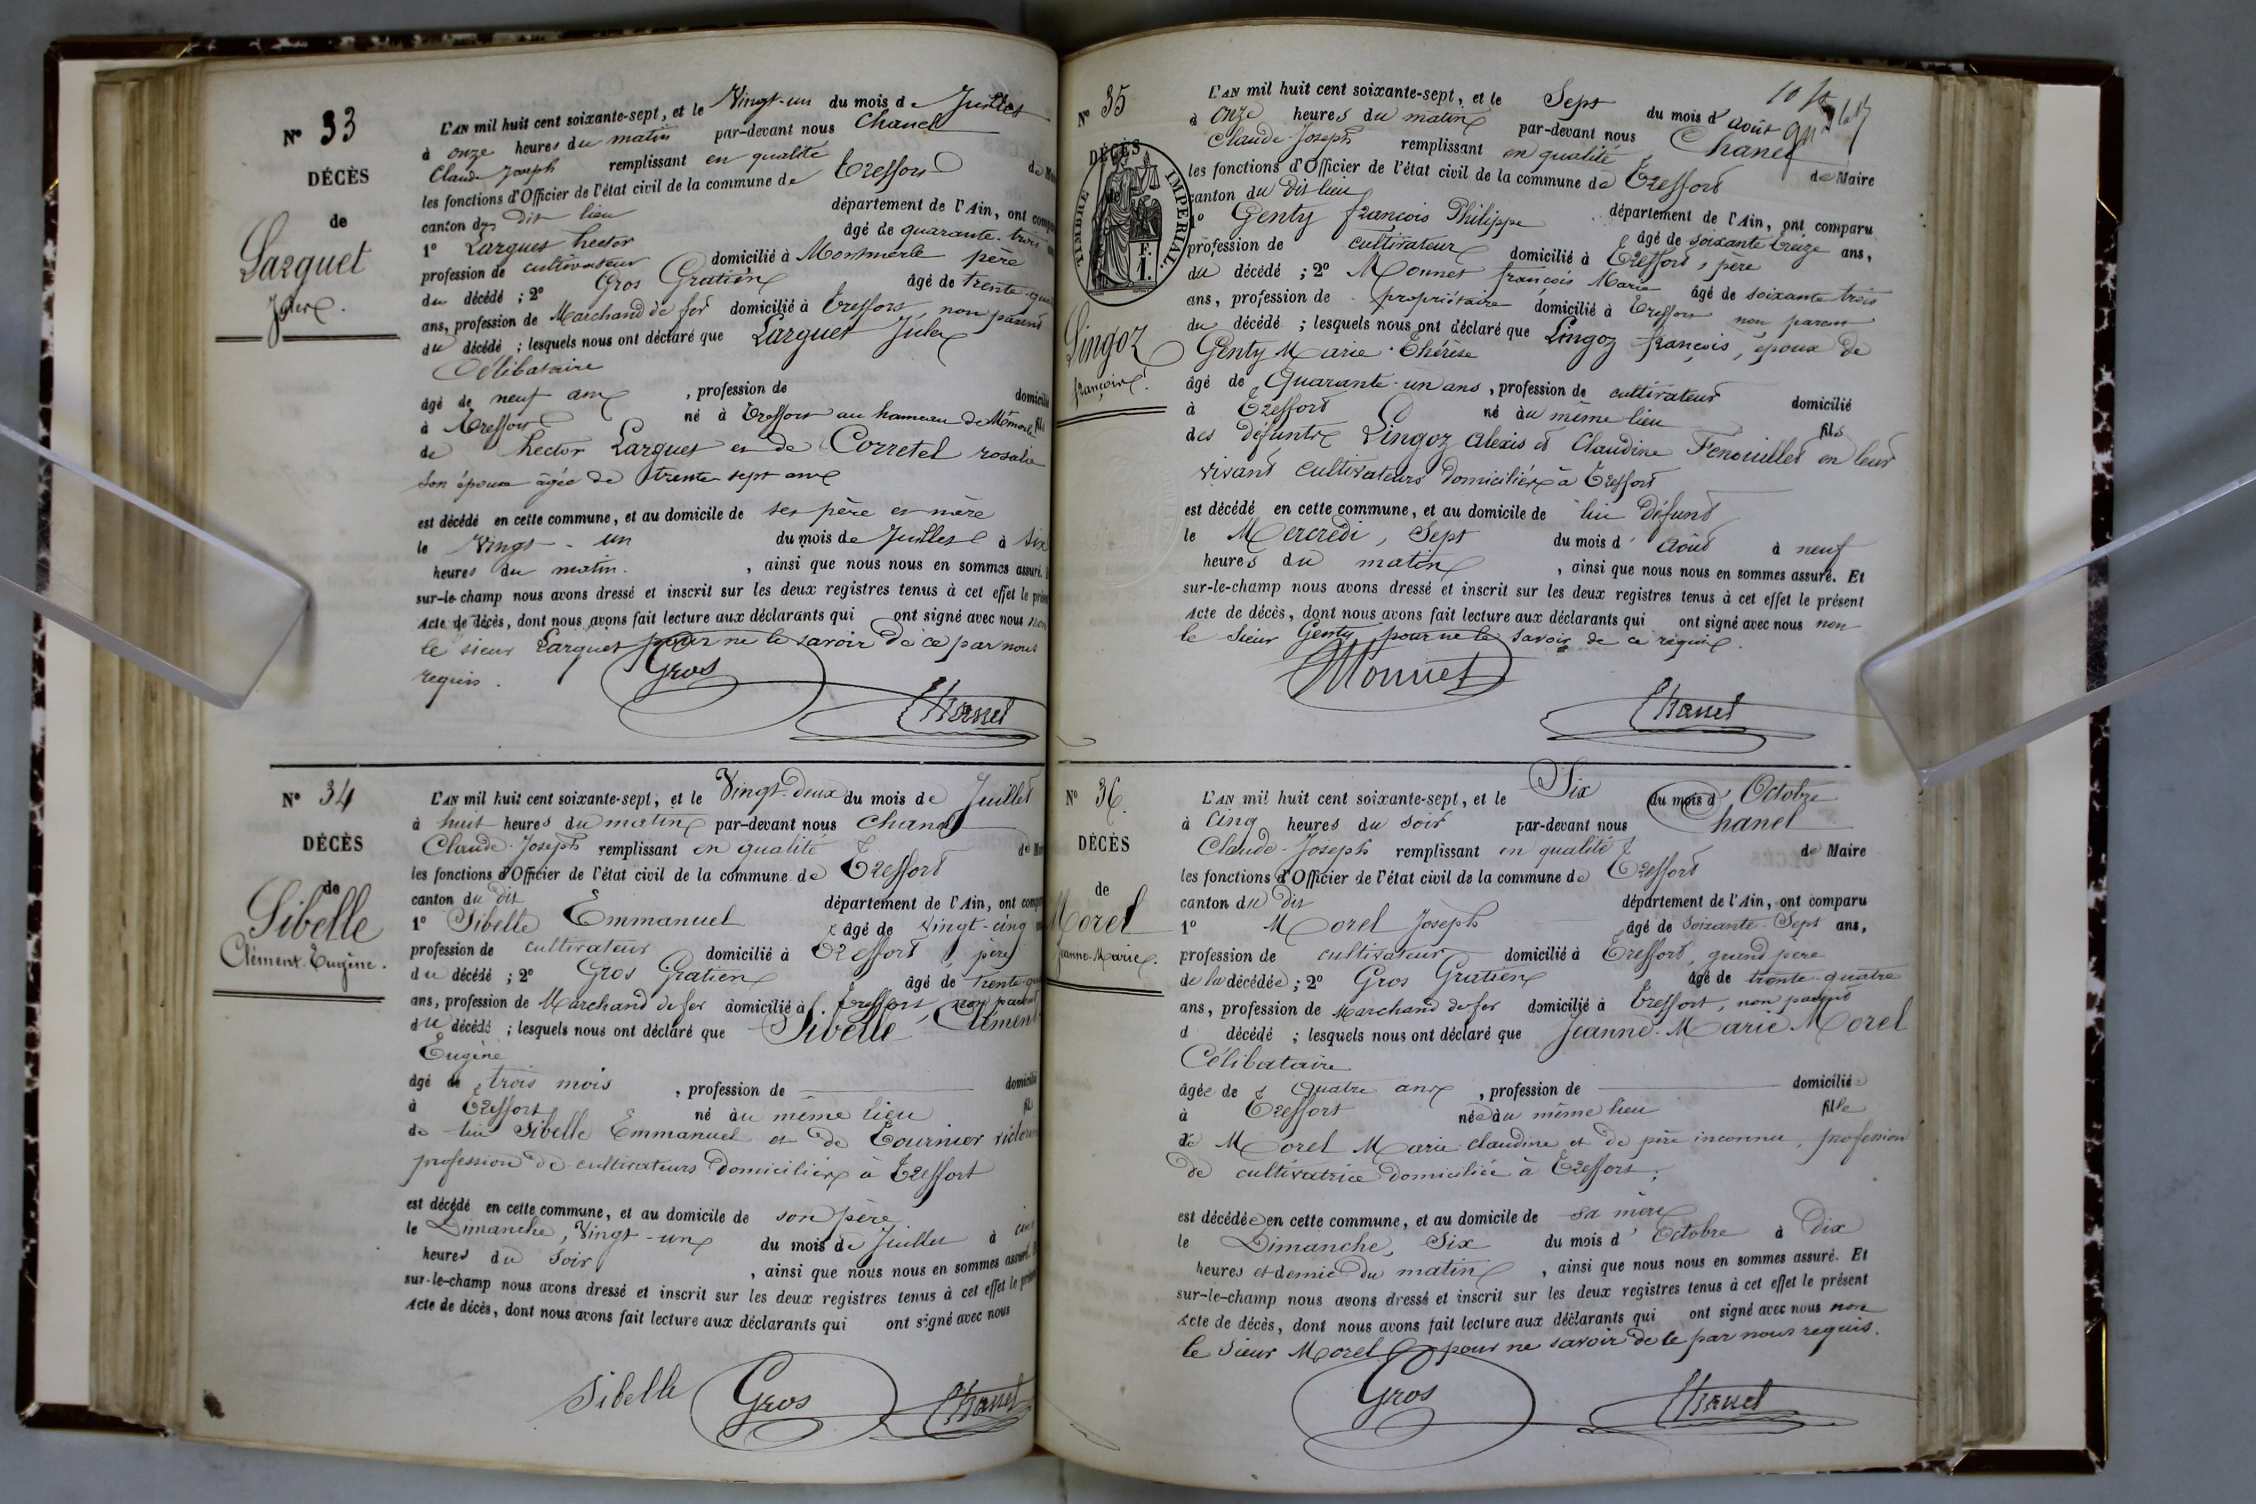 N° 33
DÉCÈS
de
Larguet
Jules.
L'AN mil huit cent soixante-sept, et le Vingt-un du mois de Juillet
à onze heures du matin par-devant nous Chanel
Claude Joseph remplissant en qualité de
les fonctions d'Officier de l'état civil de la commune de Treffort
canton du dit lieu département de l'Ain, ont
1° Larguet hector âgé de quarante-trois
profession de cultivateur domicilié à Montmerle père
du décédé ; 2° Gros Gratien âgé de trente
ans, profession de Marchand de fer domicilié à Treffort non parent
du décédé ; lesquels nous ont déclaré que Larguet Jules
Célibataire
âgé de neuf ans, profession de domicilié
à Treffort né à Treffort au hameau de fils
de hector Larguet et de Corretel rosalie
son épouse âgée de trente sept ans
est décédé en cette commune, et au domicile de ses père et mère
le Vingt-un du mois de Juillet à six
heures du matin. , ainsi que nous nous en sommes assuré.
sur-le-champ nous avons dressé et inscrit sur les deux registres tenus à cet effet le
Acte de décès, dont nous avons fait lecture aux déclarants qui ont signé avec nous non
le sieur Larguet pour ne le savoir de ce par nous
requis.
Gros
Chanel
N° 34
DÉCÈS
de
Sibelle
Clément-Eugène.
L'AN mil huit cent soixante-sept, et le Vingt-deux du mois de Juillet
à huit heures du matin par-devant nous Chanel
Claude-Joseph remplissant en qualité de
les fonctions d'Officier de l'état civil de la commune de Treffort
canton du dit département de l'Ain, ont
1° Sibelle Emmanuel âgé de vingt-cinq
profession de cultivateur domicilié à Treffort, père
du décédé ; 2° Gros Gratien âgé de trente
ans, profession de Marchand de fer domicilié à Treffort, non parent
du décédé ; lesquels nous ont déclaré que Sibelle Clément
Eugène
âgé de trois mois , profession de domicilié
à Treffort né au même lieu fils
de lui Sibelle Emmanuel et de Tournier
profession de cultivateurs domiciliés à Treffort
est décédé en cette commune, et au domicile de son père
le Dimanche, Vingt-un du mois de Juillet à
heures du soir , ainsi que nous nous en sommes assuré.
sur-le-champ nous avons dressé et inscrit sur les deux registres tenus à cet effet le
Acte de décès, dont nous avons fait lecture aux déclarants qui ont signé avec nous
Sibelle Gros Chanel
N° 35
DÉCÈS
TIMBRE IMPÉRIAL
F.
1.
Lingoz
françois.
L'AN mil huit cent soixante-sept, et le Sept du mois d'août
à onze heures du matin par-devant nous Chanel
Claude-Joseph remplissant en qualité de Maire
les fonctions d'Officier de l'état civil de la commune de Treffort
canton du dit lieu département de l'Ain, ont comparu
1° Genty françois Philippe âgé de soixante treize ans,
profession de cultivateur domicilié à Treffort, père
du décédé ; 2° Monnet françois Marie âgé de soixante-trois
ans, profession de propriétaire domicilié à Treffort non parent
du décédé ; lesquels nous ont déclaré que Lingoz françois, époux de
Genty Marie-Thérèse
âgé de Quarante-un ans, profession de cultivateur domicilié
à Treffort né au même lieu fils
des défunts Lingoz alexis et Claudine Fenouillet en leur
vivant cultivateurs domiciliés à Treffort
est décédé en cette commune, et au domicile de lui défunt
le Mercredi, Sept du mois d'août à neuf
heures du matin , ainsi que nous nous en sommes assuré. Et
sur-le-champ nous avons dressé et inscrit sur les deux registres tenus à cet effet le présent
Acte de décès, dont nous avons fait lecture aux déclarants qui ont signé avec nous non
le sieur Genty pour ne le savoir de ce requis.
Monnet
Chanel
N° 36
DÉCÈS
de
Morel
Jeanne-Marie.
L'AN mil huit cent soixante-sept, et le Six du mois d'Octobre
à cinq heures du soir par-devant nous Chanel
Claude-Joseph remplissant en qualité de Maire
les fonctions d'Officier de l'état civil de la commune de Treffort
canton du dit département de l'Ain, ont comparu
1° Morel Joseph âgé de soixante-Sept ans,
profession de cultivateur domicilié à Treffort, grand père
de la décédée ; 2° Gros Gratien âgé de trente-quatre
ans, profession de Marchand de fer domicilié à Treffort, non parent
d décédé ; lesquels nous ont déclaré que Jeanne-Marie Morel
Célibataire
âgée de quatre ans , profession de domiciliée
à Treffort née au même lieu fille
de Morel Marie-claudine et de père inconnu, profession
de cultivatrice domiciliée à Treffort.
est décédée en cette commune, et au domicile de sa mère
le Dimanche, Six du mois d'Octobre à Dix
heures et demie du matin , ainsi que nous nous en sommes assuré. Et
sur-le-champ nous avons dressé et inscrit sur les deux registres tenus à cet effet le présent
Acte de décès, dont nous avons fait lecture aux déclarants qui ont signé avec nous non
le sieur Morel pour ne savoir de ce par nous requis.
Gros Chanel